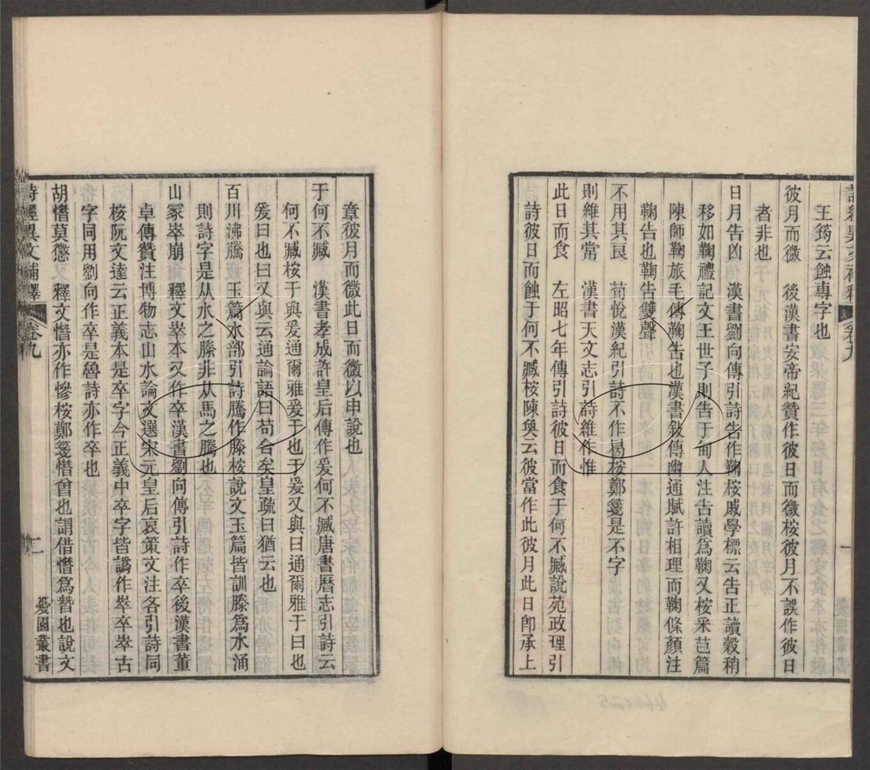 王筠云蝕專字也
彼月而微　後漢書安帝紀贊作彼日而微桉彼月不誤作彼日
者非也
日月告凶　漢書劉向傳引詩告作鞠桉戚學標云告正讀穀稍
移如鞠禮記文王世子則告于甸人注告讀爲鞠又桉釆芑篇
陳師鞠旅毛傳鞠告也漢書敘傳幽通賦許相理而鞠條顏注
鞠告也鞠告雙聲
不用其良　荀悅漢紀引詩不作曷桉鄭箋是不字
則維其常　漢書天文志引詩維作惟
此日而食　左昭七年傳引詩彼日而食于何不臧說苑政理引
詩彼日而蝕于何不臧桉陳奐云彼當作此彼月此日卽承上
章彼月而微此日而微以申說也
于何不臧　漢書孝成許皇后傳作爰何不臧唐書曆志引詩云
何不臧桉于與爰通爾雅爰于也于爰又與曰通爾雅于曰也
爰曰也曰又與云通論語曰苟合矣皇疏曰猶云也
百川沸騰　玉篇水部引詩騰作滕桉說文玉篇皆訓滕爲水涌
則詩字是从水之滕非从馬之騰也
山冢崒崩　釋文崒本又作卒漢書劉向傳引詩作卒後漢書董
卓傳贊注博物志山水論文選宋元皇后哀策文注各引詩同
桉阮文達云正義本是卒字今正義中卒字皆譌作崒卒崒古
字同用劉向作卒是魯詩亦作卒也
胡憯莫懲　釋文憯亦作慘桉鄭箋憯曾也謂借憯爲朁也說文
詩經異文補釋　卷九
憂園叢書